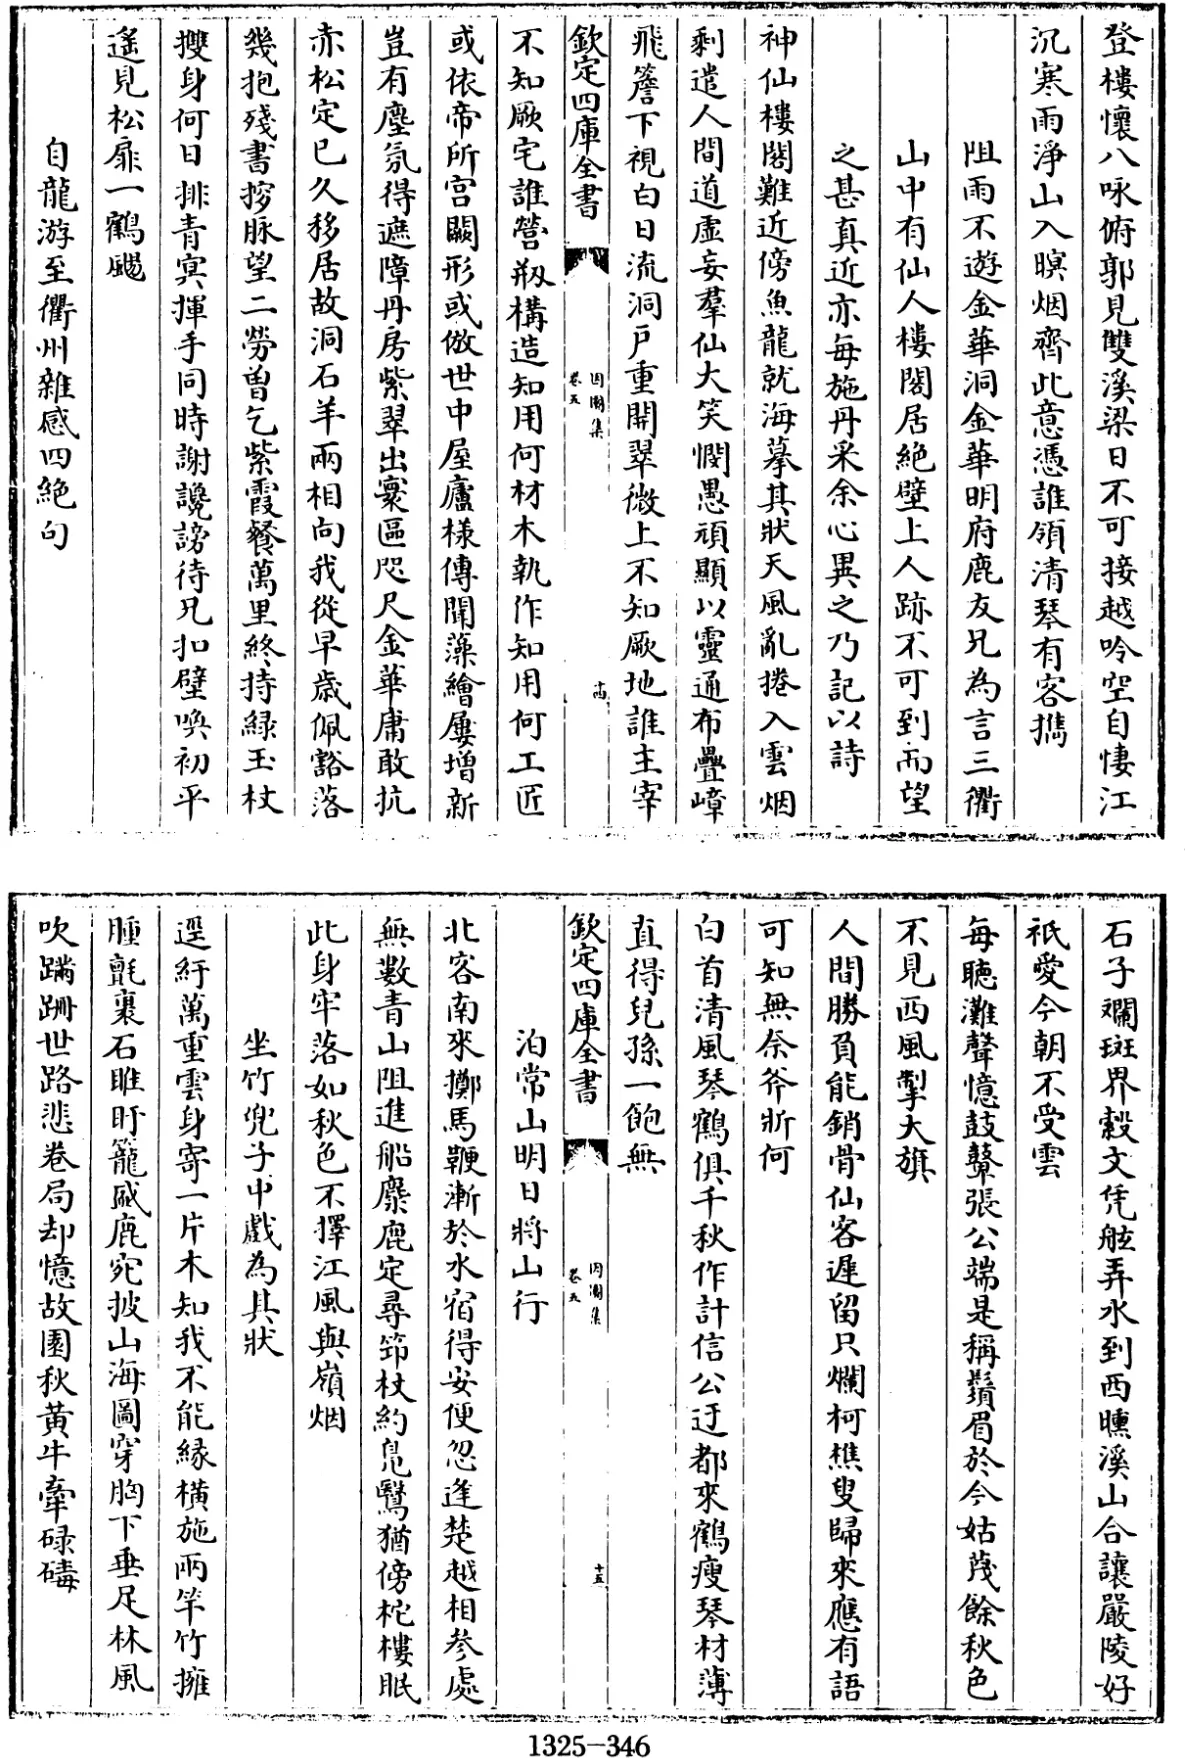 登樓懷八咏俯郭見雙溪梁日不可接越吟空自悽江
沉寒雨淨山入暝烟齊此意憑誰領清琴有客攜
阻雨不遊金華洞金華明府鹿友兄為言三衢
山中有仙人樓閣居絶壁上人跡不可到而望
之甚真近亦每施丹采余心異之乃記以詩
神仙樓閣難近傍魚龍就海摹其狀天風亂捲入雲烟
剩遣人間道虛妄羣仙大笑憫愚頑顯以靈通布疊嶂
飛簷下視白日流洞戸重開翠微上不知厥地誰主宰
欽定四庫全書
卷五
四庫集
十四
不知厥宅誰營剏構造知用何材木執作知用何工匠
或依帝所宮闕形或倣世中屋廬様傳聞藻繪屢增新
豈有塵氛得遮障丹房紫翠出寰區咫尺金華庸敢抗
赤松定已久移居故洞石羊兩相向我從早歲佩豁落
幾抱殘書揆脉望二勞曽乞紫霞餐萬里終持緑玉杖
搜身何日排青冥揮手同時謝讒謗待兄扣壁喚初平
遙見松扉一鶴颺
自龍游至衢州雜感四絶句
石子斕斑界縠文凭舷弄水到西曛溪山合讓嚴陵好
祇愛今朝不受雲
每聽灘聲憶鼓鼙張公端是稱鬚眉於今姑蔑餘秋色
不見西風掣大旗
人間勝負能銷骨仙客遲留只爛柯樵叟歸來應有語
可知無奈斧斨何
白首清風琴鶴俱千秋作計信公迂都來鶴瘦琴材薄
直得兒孫一飽無
欽定四庫全書
卷五
十五
泊常山明日將山行
北客南來擲馬鞭漸於水宿得安便忽逢楚越相參處
無數青山阻進船麋鹿定尋筇杖約鳬鷖猶傍柁樓眠
此身牢落如秋色不擇江風與嶺烟
坐竹兜子中戲為其狀
逕紆萬重雲身寄一片木知我不能緣橫施兩竿竹擁
腫氈裹石睢盱籠盛鹿宛披山海圖穿胸下垂足林風
吹蹣跚世路悲卷局却憶故園秋黃牛牽碌碡
1325-346